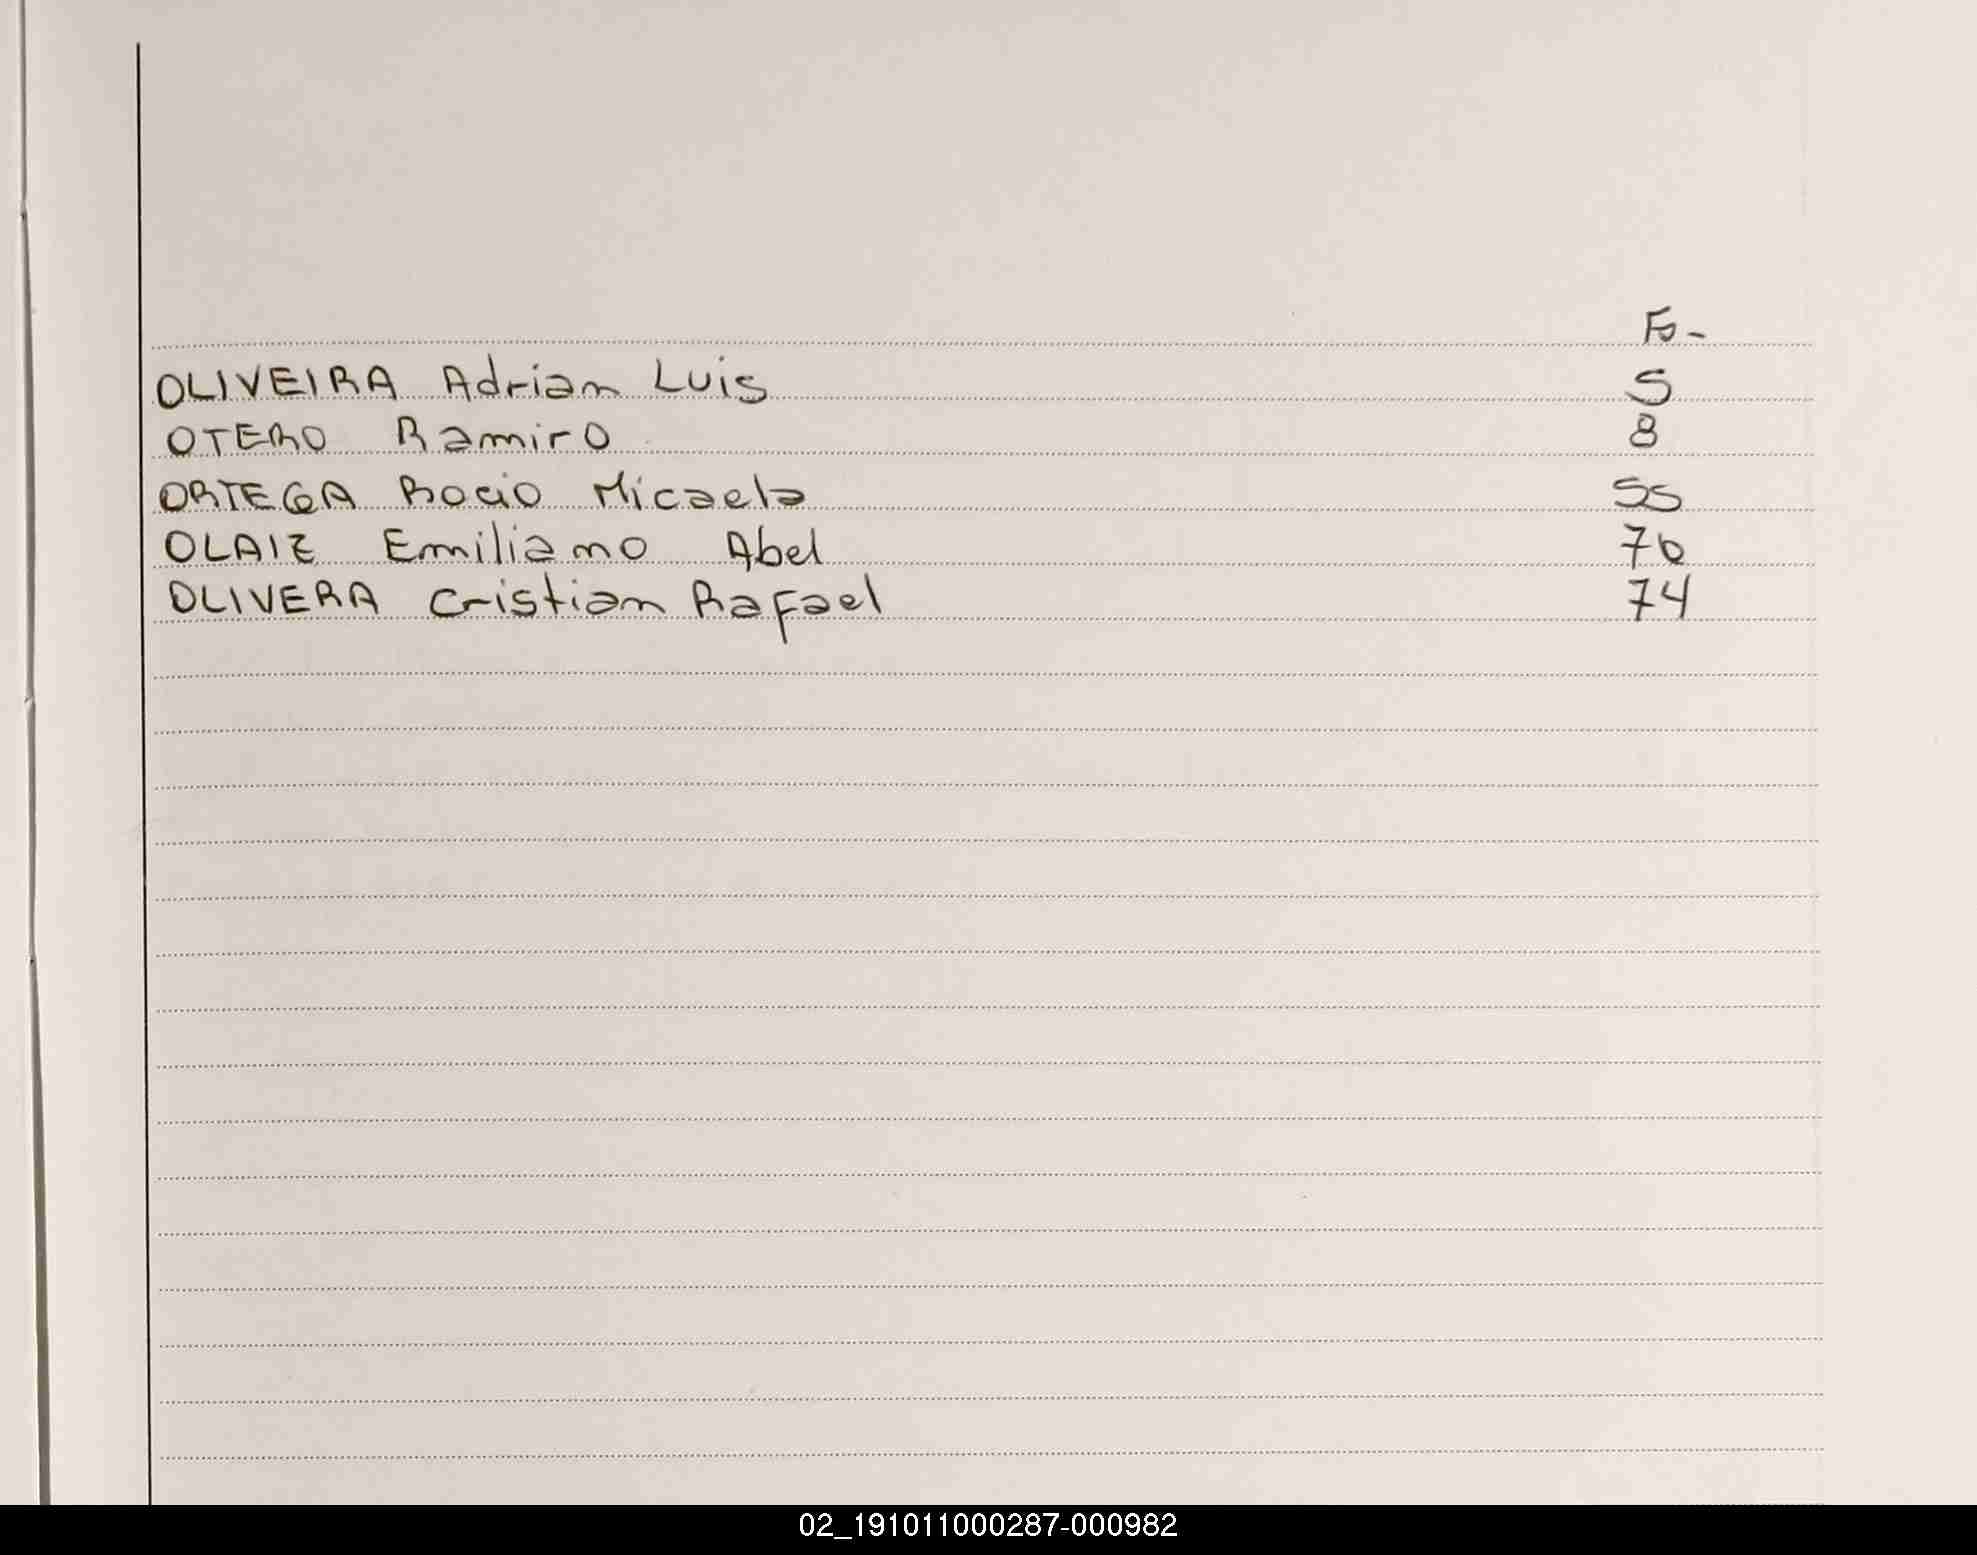 Fo-
OLIVEIRA Adrian Luis 5
OTERO Ramiro 8
ORTEGA Rocio Micaela 55
OLAIZ Emiliano Abel 70
OLIVERA Cristian Rafael 74
02_191011000287-000982